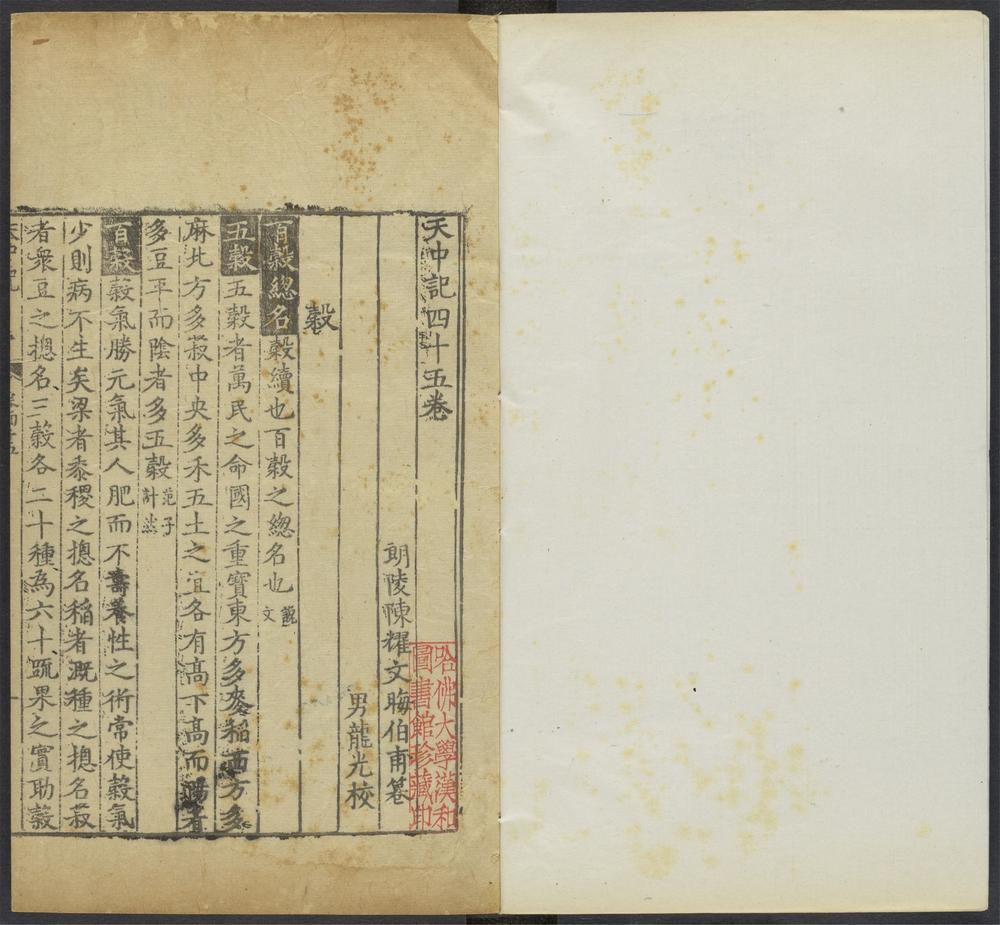 天中記四十五卷
朗陵陳耀文晦伯甫纂
男龍光校
穀
百穀總名穀續也百穀之總名也說文
五穀五穀者萬民之命國之重寶東方多麥稻西方多
麻北方多菽中央多禾五土之宜各有高下高而陽者
多豆平而陰者多五穀范子計然
百穀穀氣勝元氣其人肥而不壽養性之術常使穀氣
少則病不生矣梁者黍稷之摠名稻者溉種之摠名菽
者衆豆之摠名三穀各二十種為六十蔬果之實助穀
天中記
哈佛大學漢和
圖書館珍藏印